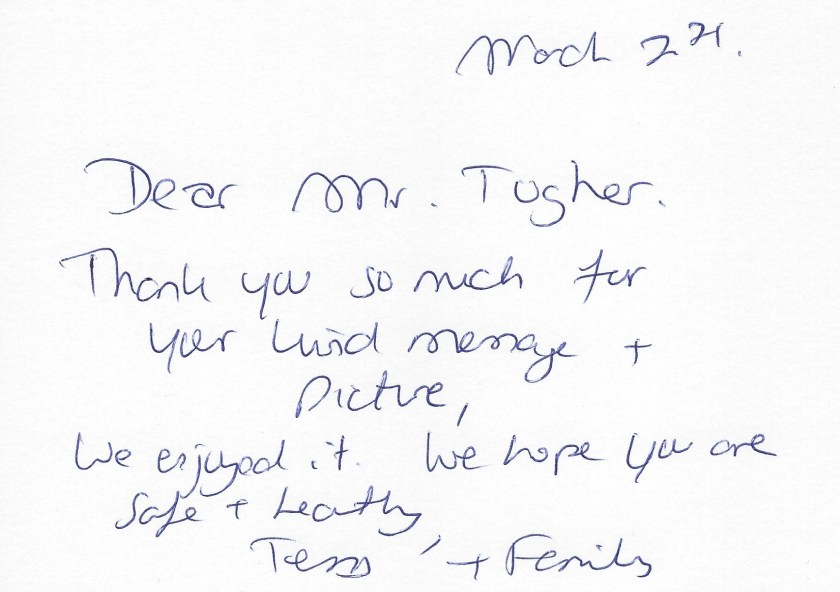 March 22nd.
Dear Mr. Tugher.
Thank you so much for
your kind message +
Picture,
We enjoyed it. We hope you are
safe + healthy,
Tess + Family